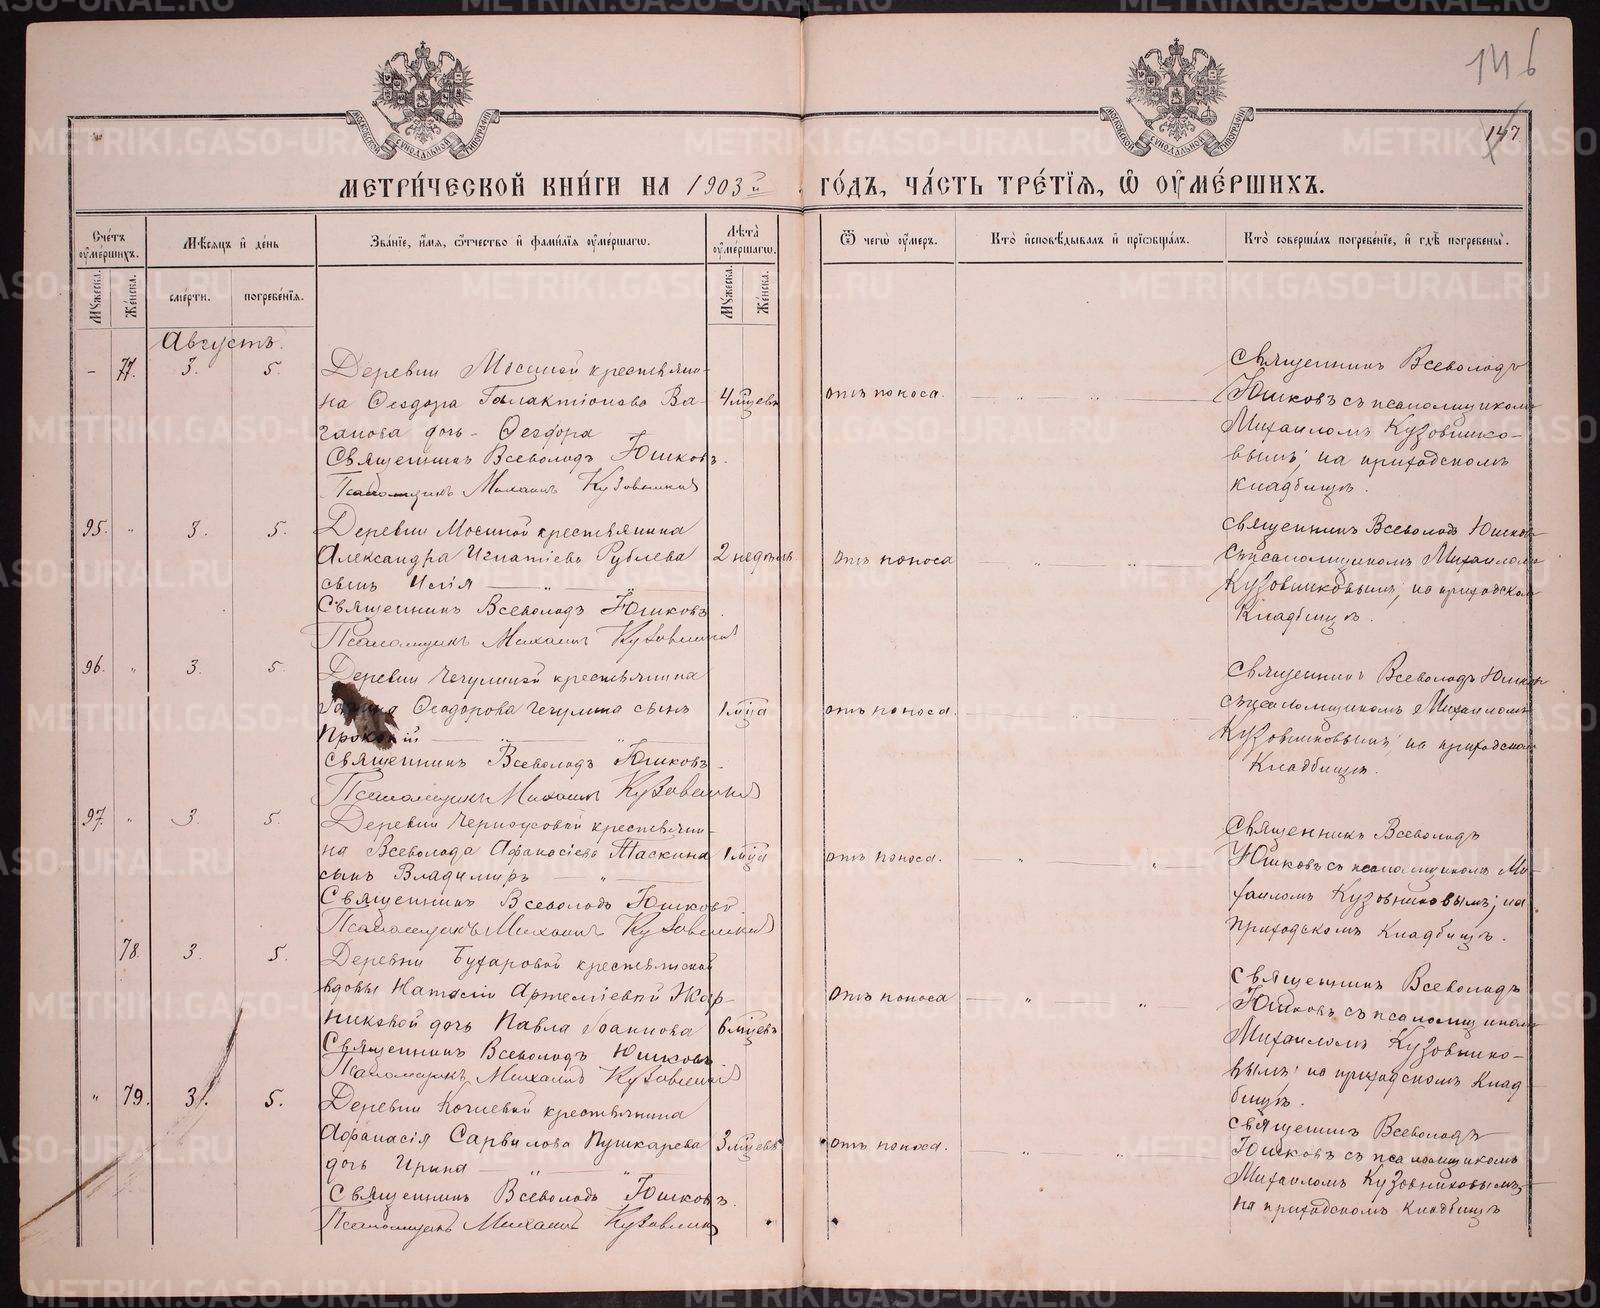 146
147
МОСКОВСКОЙ СѴНОДАЛЬНОЙ ТИПОГРАФІИ
МОСКОВСКОЙ СѴНОДАЛЬНОЙ ТИПОГРАФІИ
МЕТРИ́ЧЕСКОЙ КНИ́ГИ НА 1903й ГО́ДЪ, ЧА́СТЬ ТРЕ́ТІЯ, Ѿ ОУМЕ́РШИХЪ.
Сче́тъ оуме́ршихъ.
Мѣ́сяцъ и де́нь
Зва́ніе, и́мя, ѻ҆́тчество и фами́лія оуме́ршагѡ.
Лѣ́та оуме́ршагѡ.
Ѿ чегѡ̀ оу́меръ.
Кто̀ исповѣ́дывалъ и пріѡбща́лъ.
Кто̀ соверша́лъ погребе́ніе, и гдѣ̀ погребены̀.
Му́жеска.
Же́нска.
сме́рти.
погребе́нія.
Му́жеска.
Же́нска.
Августъ.
- 77. 3. 5.
Деревни Мосиной крестьяни-
на Ѳеодора Галактіонова Ва-
ганова дочь - Ѳеодора
Священникъ Всеволодъ Юшковъ.
Псаломщикъ Михаилъ Кузовников
4 мцевъ
отъ поноса. " "
Священникъ Всеволодъ
Юшковъ съ псаломщикомъ
Михаиломъ Кузовнико-
вымъ; на приходскомъ
кладбищѣ.
95. " 3. 5.
Деревни Мосиной крестьянина
Александра Игнатіева Рублева
сынъ Илія "
Священникъ Всеволодъ Юшковъ.
Псаломщикъ Михаилъ Кузовников
2 недѣль
отъ поноса " "
Священникъ Всеволодъ Юшковъ
съ псаломщикомъ Михаиломъ
Кузовниковымъ; на приходском
Кладбищѣ.
96. " 3. 5.
Деревни Чечулиной крестьянина
Ѳеодорова Чечулина сынъ
Прокопій " "
Священникъ Всеволодъ Юшковъ.
Псаломщикъ Михаилъ Кузовников
1 мца
отъ поноса. " "
Священникъ Всеволодъ Юшковъ
съ псаломщикомъ Михаиломъ
Кузовниковымъ на приходском
Кладбищѣ.
97. " 3. 5.
Деревни Черноусовой крестьяни-
на Всеволода Афанасіева Таскина
сынъ Владиміръ "
Священникъ Всеволодъ Юшковъ.
Псаломщикъ Михаилъ Кузовников
1 мца
отъ поноса. " "
Священникъ Всеволодъ
Юшковъ съ псаломщикомъ Ми-
хаиломъ Кузовниковымъ; на
приходскомъ кладбищѣ.
78. 3. 5.
Деревни Бухаровой крестьянской
вдовы Наталіи Артеміевой Жар-
никовой дочь Павла Іоаннова
Священникъ Всеволодъ Юшковъ.
Псаломщикъ Михаилъ Кузовников
6 мцевъ
отъ поноса " "
Священникъ Всеволодъ
Юшковъ съ псаломщикомъ
Михаиломъ Кузовнико-
вымъ; на приходскомъ клад-
бищѣ.
" 79. 3. 5.
Деревни Кочневой крестьянина
Афанасія Сарвилова Пушкарева
дочь Ирина " "
Священникъ Всеволодъ Юшковъ.
Псаломщикъ Михаилъ Кузовников
3 мцевъ
отъ поноса. " "
Священникъ Всеволодъ
Юшковъ съ псаломщикомъ
Михаиломъ Кузовниковымъ
на приходскомъ кладбищѣ
METRIKI.GASO-URAL.RU